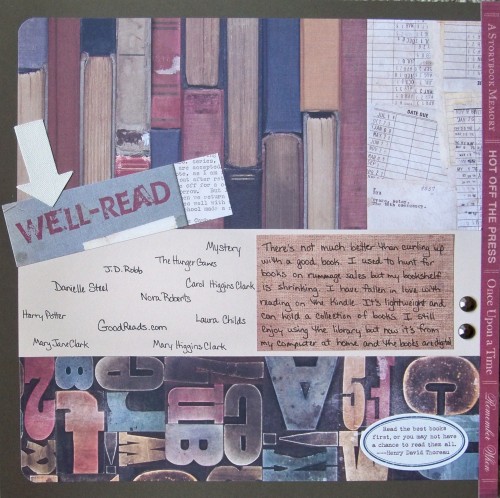 DATE DUE
WELL-READ
Mystery
The Hunger Games
J.D. Robb
Danielle Steel
Carol Higgins Clark
Nora Roberts
Harry Potter
Laura Childs
GoodReads.com
Mary Jane Clark
Mary Higgins Clark
There's not much better than curling up
with a good book. I used to hunt for
books on rummage sales but my bookshelf
is shrinking. I have fallen in love with
reading on the Kindle. It's lightweight and
can hold a collection of books. I still
enjoy using the library but now it's from
my computer at home and the books are digital
Read the best books
first, or you may not have
a chance to read them all.
---Henry David Thoreau
A Storybook Memory
HOT OFF THE PRESS
Once Upon a Time
Remember When